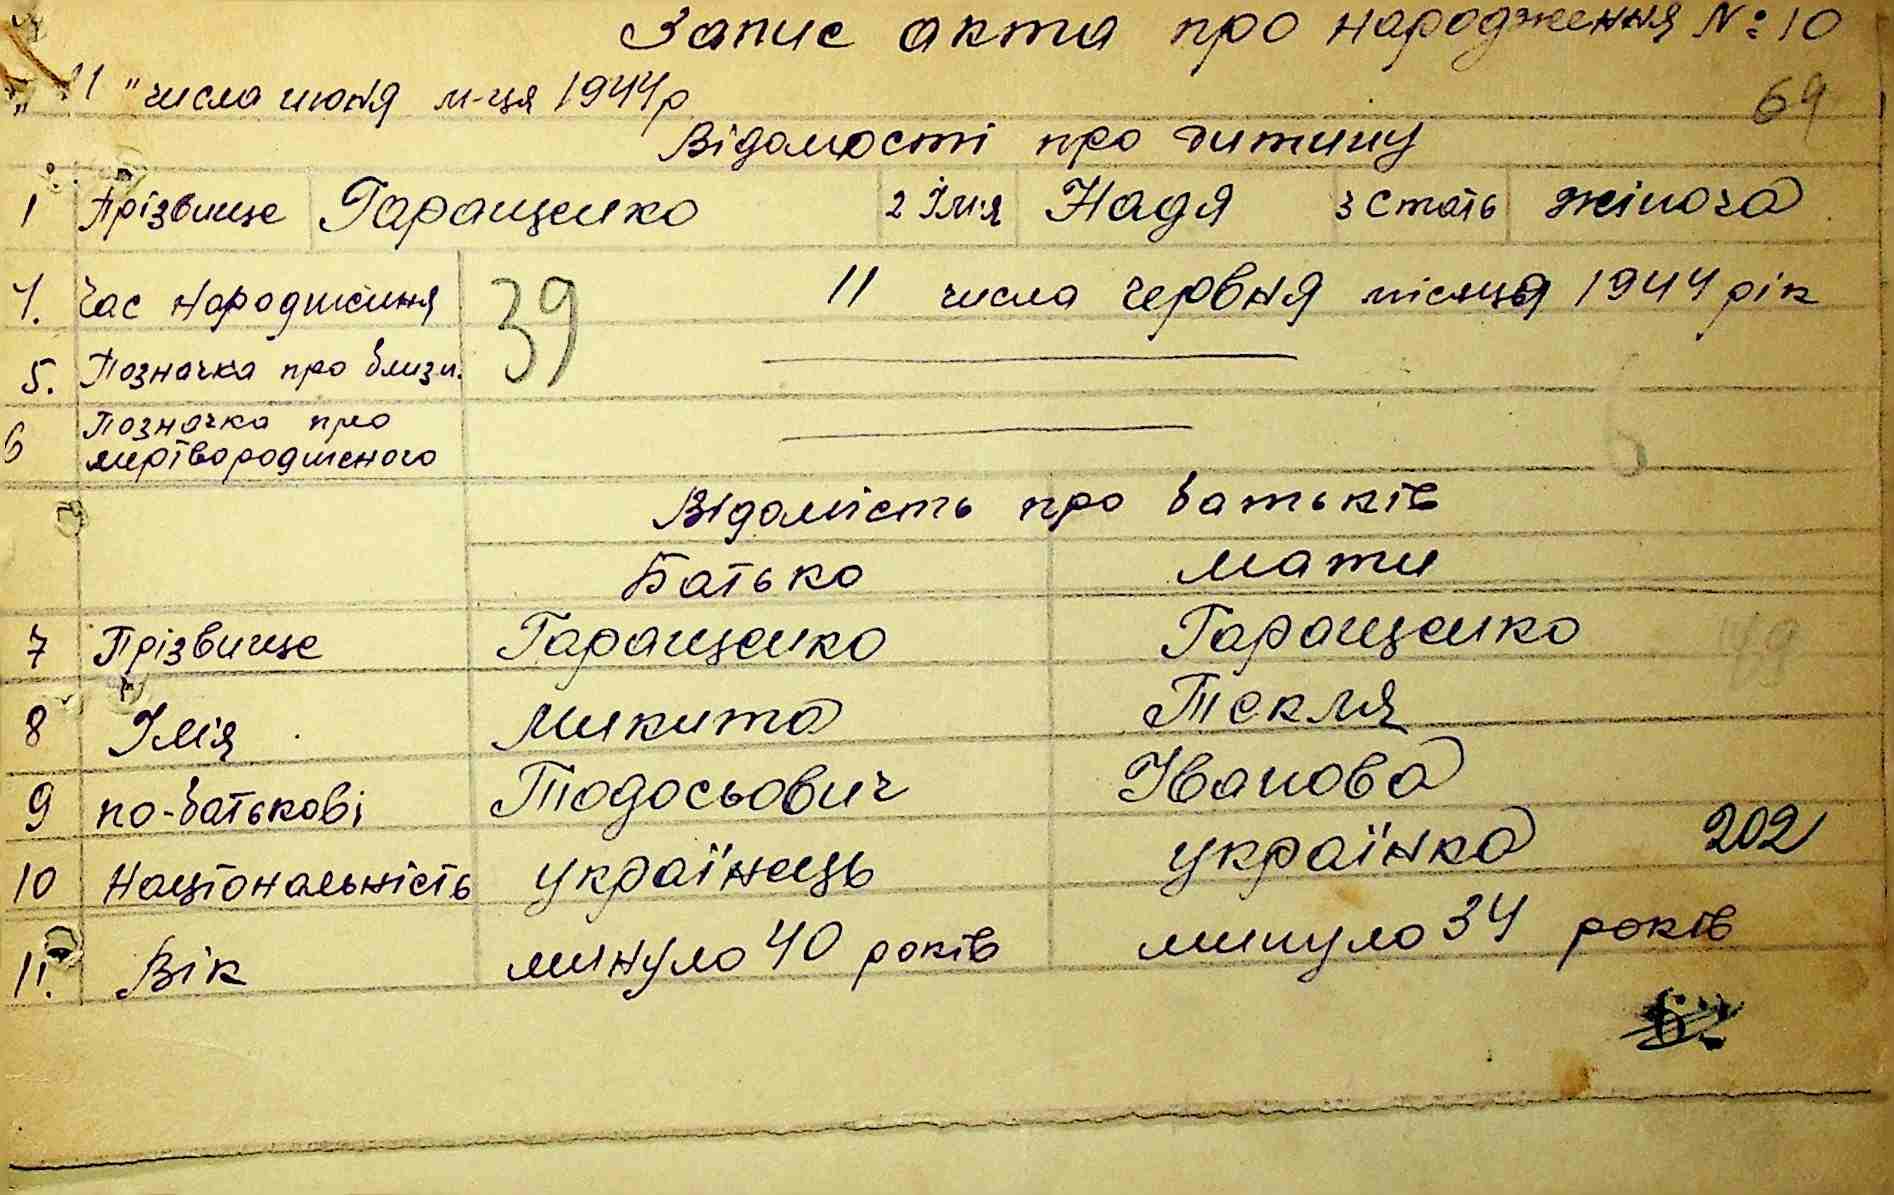 Запис акта про народження №: 10
„ 11 " числа июня м-ця 1944 р
69
Відомості про дитину
1 Прізвище Гаращенко 2 Імя Надя 3 Стать жіноча
4. Час народження 39 11 числа червня місяця 1944 рік
5. Позначка про близн.
6 Позначка про
мертвородженого
Відомість про батьків
Батько мати
7 Прізвище Гаращенко Гаращенко
8 Імія Микита Текля
9 по-батькові Тодосьович Іванова
10 Національність українець українка 202
11. Вік минуло 40 років минуло 34 років